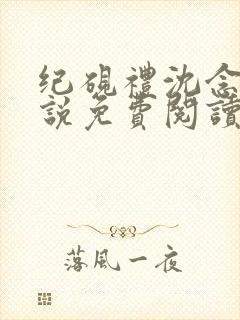 纪砚禮沈念
說免費閱讀
落風一夜